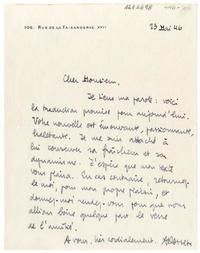 106, RUE DE LA FAISANDERIE-XVI^e
23 Mai 46
Cher Monsieur,
Je tiens ma parole: voici
la traduction promise pour aujourd'hui.
Votre nouvelle est émouvante, passionnante,
haletante. Je me suis attaché à
lui conserver sa fraîcheur et son
dynamisme. J'espère que mon texte
vous plaira. En cas contraire, retournez-
le moi, pour mon propre plaisir, et
donnez-moi rendez-vous pour que nous
allions boire quelque part le verre
de l'amitié.
A vous, très cordialement.